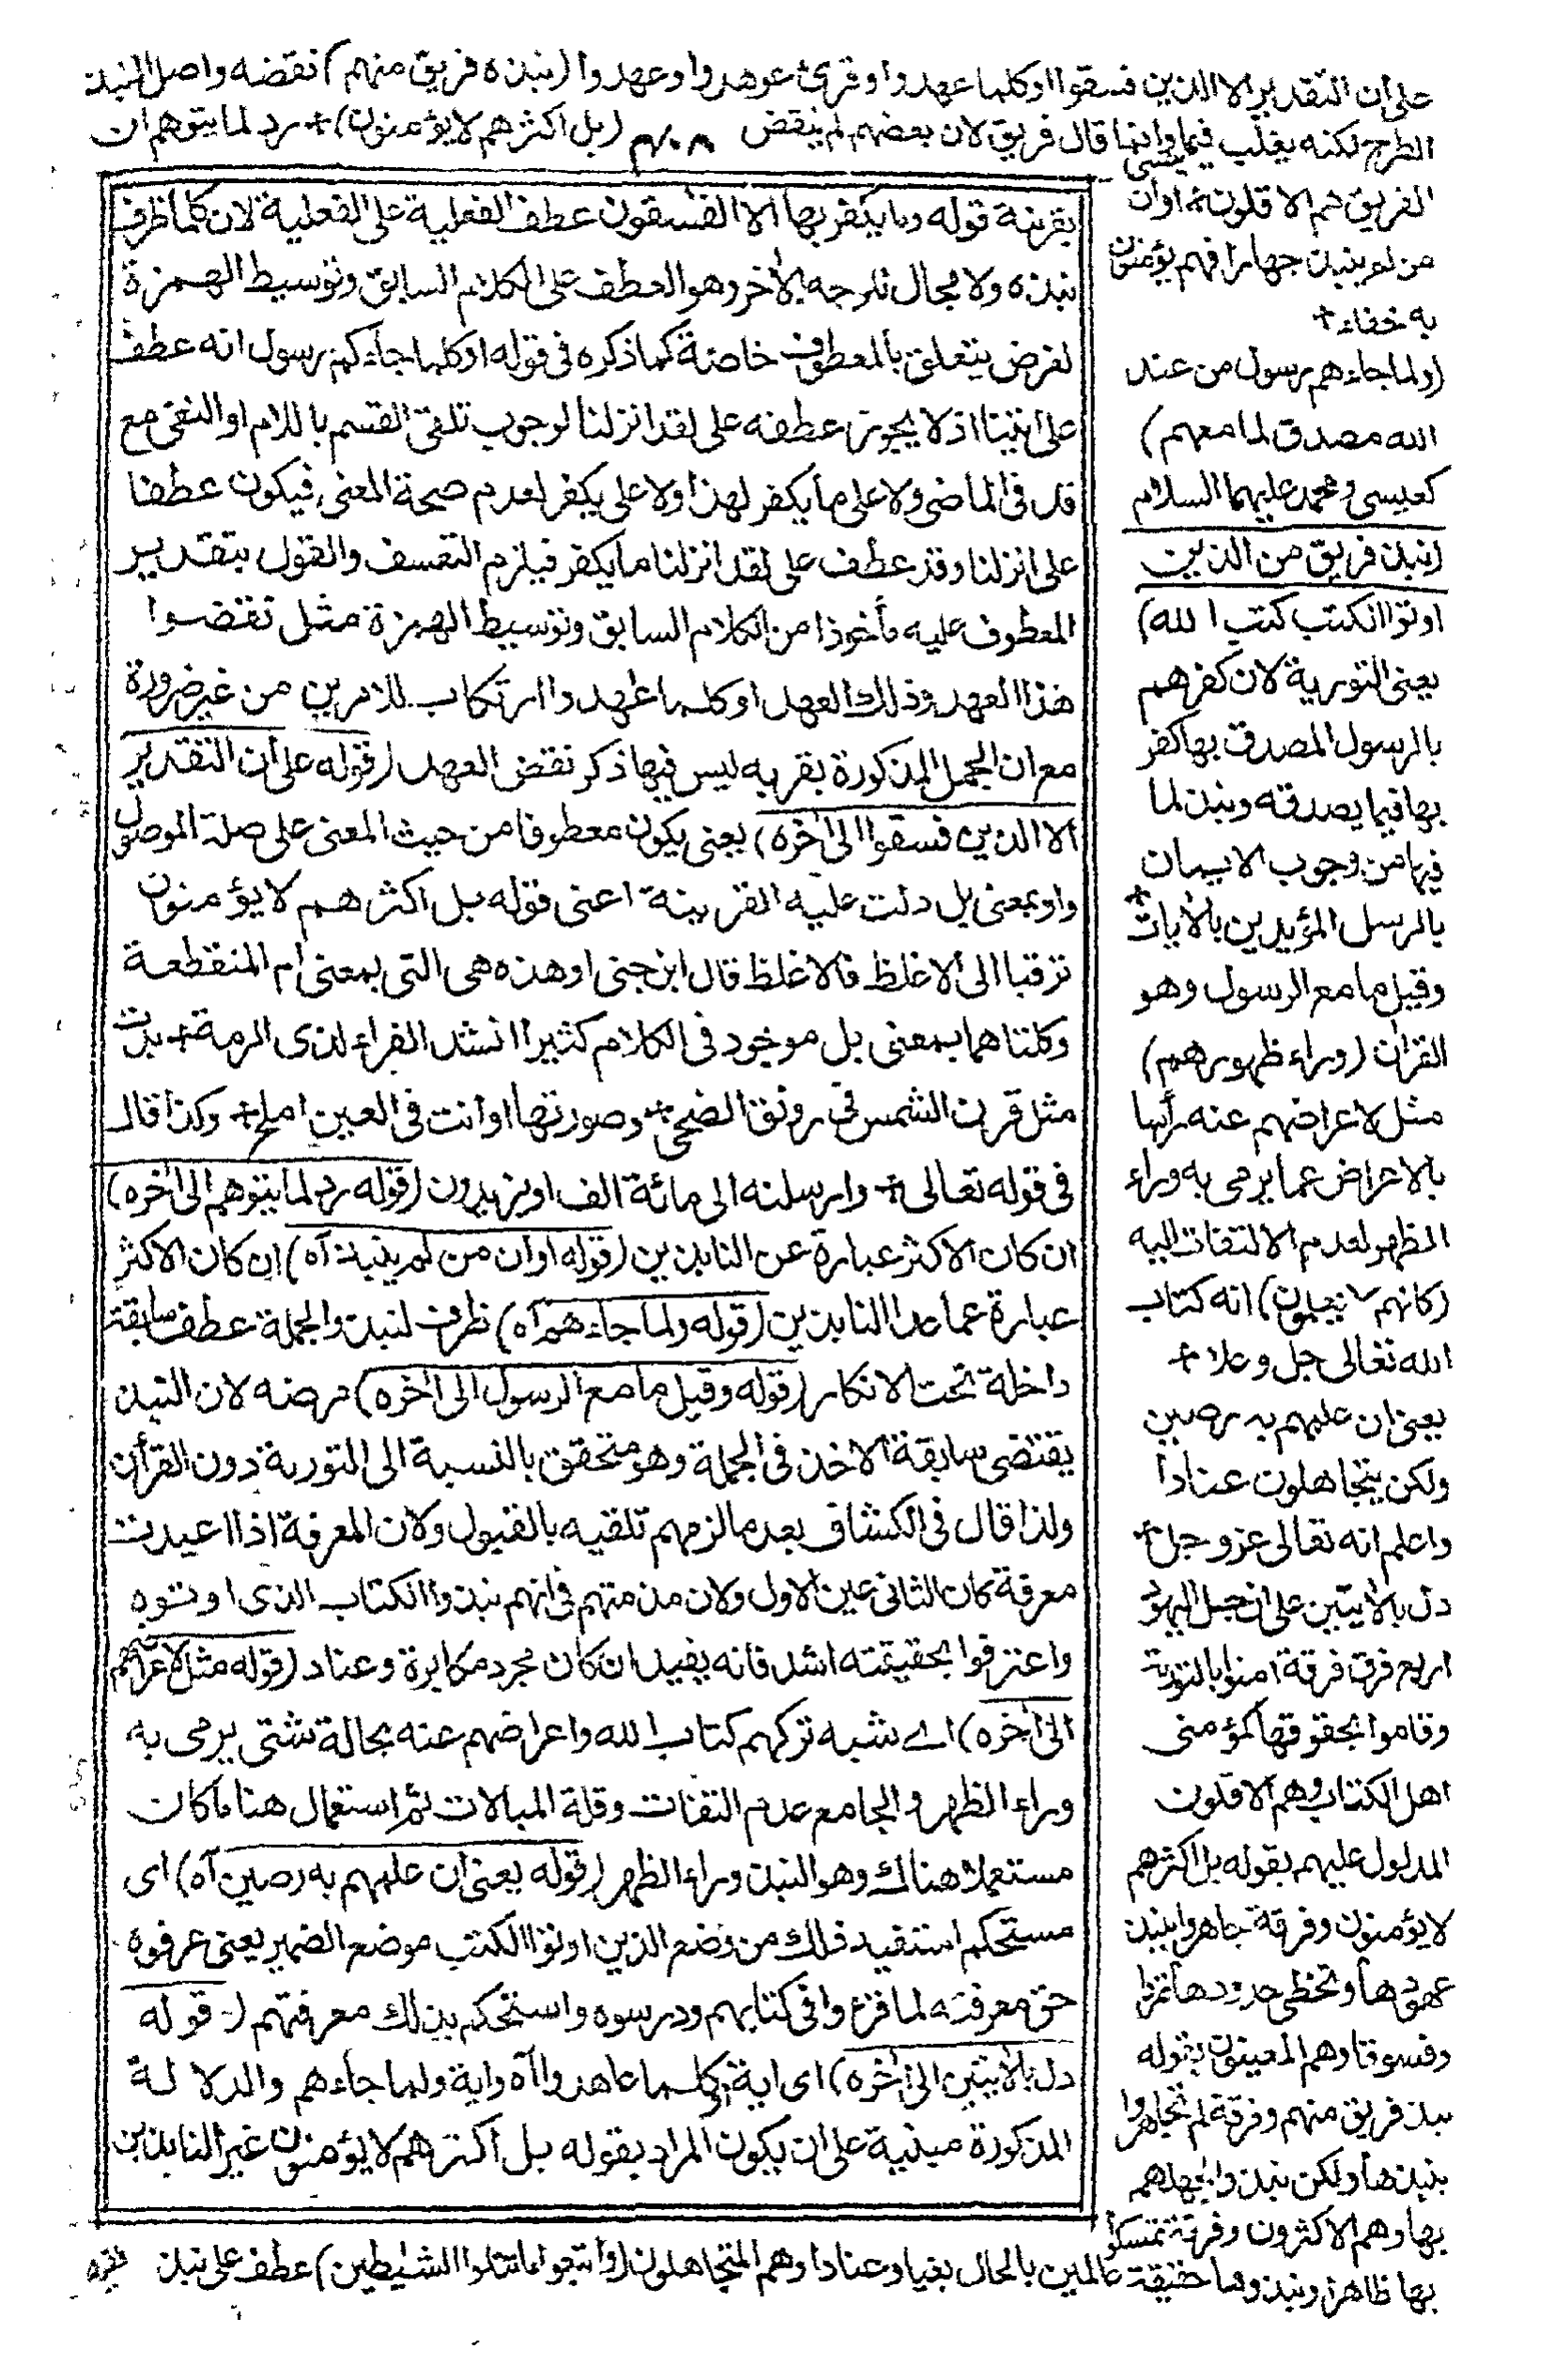 على ان التقدير الا الذين فسقوا او كلما عهدوا وقرئ عوهدوا وعهدوا (نبذه فريق منهم) نقضه واصل النبذ
الطرح لكنه يغلب فيما ينسى وانما قال فريق لان بعضهم لم ينقض (بل اكثرهم لا يؤمنون)+ رد لما يتوهم ان
الفريق هم الاقلون او ان
من لم ينبذ جهارا فهم يؤمنون
به خفاء+
(ولما جاءهم رسول من عند
الله مصدق لما معهم)
كعيسى ومحمد عليهما السلام
(نبذ فريق من الذين
اوتوا الكتب كتب الله)
يعنى التورية لان كفرهم
بالرسول المصدق بها كفر
بها فيما يصدقه ونبذ لما
فيها من وجوب الايمان
بالرسل المؤيدين بالأيات+
وقيل ما مع الرسول وهو
القرأن (وراء ظهورهم)
مثل لاعراضهم عنه رأسا
بالاعراض عما يرمى به وراء
الظهر لعدم الالتفات اليه
(كانهم لا يعلمون) انه كتاب
الله تعالى جل وعلا+
يعنى ان علمهم به رصين
ولكن يتجاهلون عنادا
واعلم انه تعالى عز وجل+
دل بالأيتين على ان جيل اليهود
اربع فرق فرقة امنوا بالتورية
وقاموا بحقوقها كمؤمنى
اهل الكتاب وهم الاقلون
المدلول عليهم بقوله بل اكثرهم
لا يؤمنون وفرقة جاهروا بنبذ
عهودها وتخطى حدودها تمردا
وفسوقا وهم المعنيون بقوله
نبذ فريق منهم وفرقة لم يجاهروا
بنبذها ولكن نبذوا لجهلهم
بها وهم الاكثرون وفرقة تمسكوا
بها ظاهرا ونبذوها حقيقة عالمين بالحال بغيا وعنادا وهم المتجاهلون (واتبعوا ما تتلوا الشيطين) عطف على نبذ
بقرينة قوله وما يكفر بها الا الفسقون عطف الفعلية على الفعلية لان كلما ظرف
نبذه ولا مجال للوجه الأخر وهو العطف على الكلام السابق وتوسيط الهمزة
لغرض يتعلق بالمعطوف خاصة كما ذكره فى قوله او كلما جاءكم رسول انه عطف
على اتينا اذ لا يجوز عطفه على لقد انزلنا لوجوب تلقى القسم باللام او النفى مع
قد فى الماضى ولا على ما يكفر لهذا ولا على يكفر لعدم صحة المعنى فيكون عطفا
على انزلنا وقد عطف على لقد انزلنا ما يكفر فيلزم التعسف والقول بتقدير
المعطوف عليه مأخوذا من الكلام السابق وتوسيط الهمزة مثل نقضوا
هذا العهد وذلك العهد او كلما عهدوا ارتكاب للامرين من غير ضرورة
مع ان الجمل المذكورة بقربه ليس فيها ذكر نقض العهد (قوله على ان التقدير
الا الذين فسقوا الى أخره) يعنى يكون معطوفا من حيث المعنى على صلة الموصول
واو بمعنى بل دلت عليه القرينة اعنى قوله بل اكثرهم لا يؤمنون
ترقيا الى الاغلظ فالاغلظ قال ابن جنى او هذه هى التى بمعنى ام المنقطعة
وكلتاهما بمعنى بل موجود فى الكلام كثيرا انشد الفراء لذى الرمة+ بدت
مثل قرن الشمس فى رونق الضحى+ وصورتها او انت فى العين املح+ وكذا قال
فى قوله تعالى+ وارسلنه الى مائة الف او يزيدون (قوله رد لما يتوهم الى أخره)
ان كان الاكثر عبارة عن النابذين (قوله او ان من لم ينبذ آه) ان كان الاكثر
عبارة عما عدا النابذين (قوله ولما جاءهم آه) ظرف لنبذ والجملة عطف سابقته
داخلة تحت الانكار (قوله وقيل ما مع الرسول الى أخره) مرضه لان النبذ
يقتضى سابقة الاخذ فى الجملة وهو متحقق بالنسبة الى التورية دون القرأن
ولذا قال فى الكشاف بعد ما لزمهم تلقيه بالقبول ولان المعرفة اذا اعيدت
معرفة كان الثانى عين الاول ولان مذمتهم فى انهم نبذوا الكتاب الذى اوتوه
واعترفوا بحقيته اشد فانه يفيد ان كان مجرد مكابرة وعناد (قوله مثل لاعراضهم
الى أخره) اے شبه تركهم كتاب الله واعراضهم عنه بحالة شئ يرمى به
وراء الظهر والجامع عدم التفات وقلة المبالات ثم استعمال هنا ما كان
مستعملا هناك وهو النبذ وراء الظهر (قوله يعنى ان علمهم به رصين آه) اى
مستحكم استفيد ذلك من وضع الذين اوتوا الكتب موضع الضمير يعنى عرفوه
حق معرفته لما قرءوا فى كتابهم ودرسوه واستحكم بذلك معرفتهم (قوله
دل بالأيتين الى أخره) اى اية او كلما عاهدوا آه واية ولما جاءهم والدلالة
المذكورة مبنية على ان يكون المراد بقوله بل اكثرهم لا يؤمنون غير النابذين